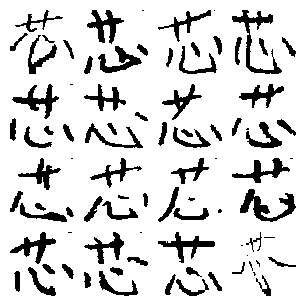 芯芯芯芯
芯芯芯芯
芯芯芯芯
芯芯芯